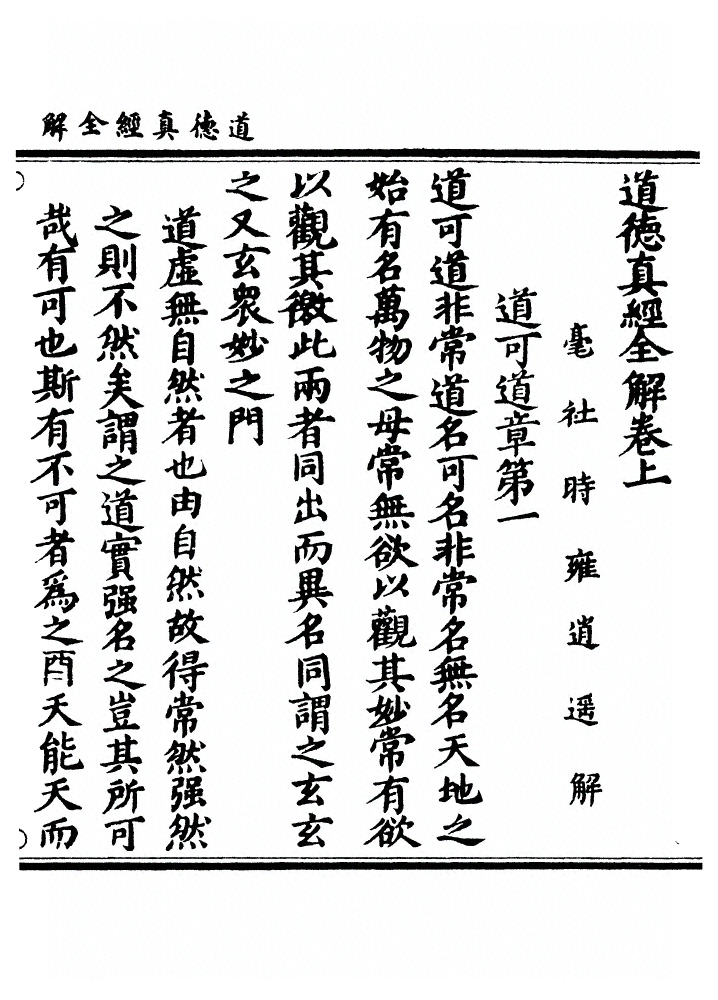 道德真經全解
道德真經全解卷上
毫社時雍逍遥解
道可道章第一
道可道非常道名可名非常名無名天地之
始有名萬物之母常無欲以觀其妙常有欲
以觀其徼此兩者同出而異名同謂之玄玄
之又玄衆妙之門
道虛無自然者也由自然故得常然强然
之則不然矣謂之道實强名之豈其所可
哉有可也斯有不可者爲之酉天能天而